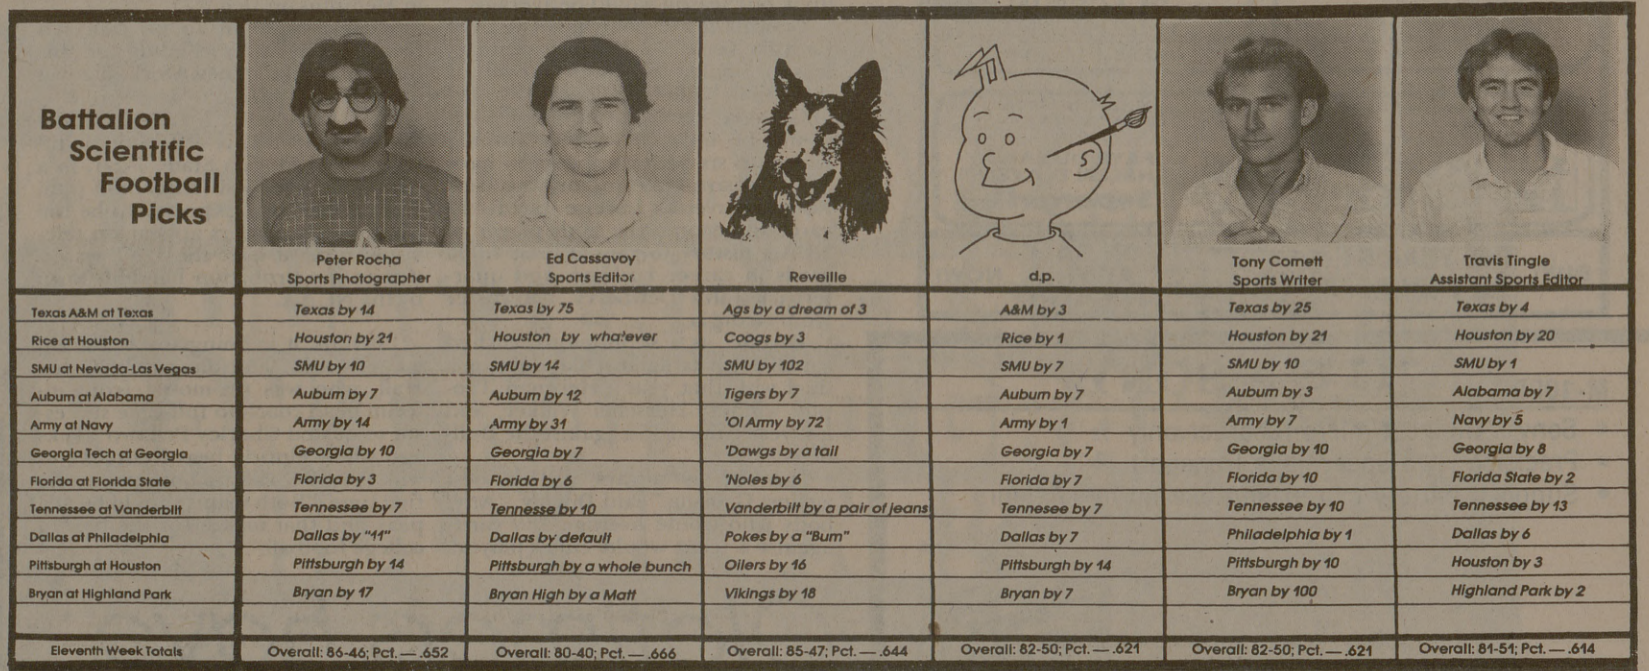 Battalion
Scientific
Football
Picks
Peter Rocha
Sports Photographer
Ed Cassavoy
Sports Editor
Reveille
d.p.
Tony Cornett
Sports Writer
Travis Tingle
Assistant Sports Editor
Texas A&M at Texas Texas by 14 Texas by 75 Ags by a dream of 3 A&M by 3 Texas by 25 Texas by 4
Rice at Houston Houston by 21 Houston by whatever Coogs by 3 Rice by 1 Houston by 21 Houston by 20
SMU at Nevada-Las Vegas SMU by 10 SMU by 14 SMU by 102 SMU by 7 SMU by 10 SMU by 1
Auburn at Alabama Auburn by 7 Auburn by 12 Tigers by 7 Auburn by 7 Auburn by 3 Alabama by 7
Army at Navy Army by 14 Army by 31 'Ol Army by 72 Army by 1 Army by 7 Navy by 5
Georgia Tech at Georgia Georgia by 10 Georgia by 7 'Dawgs by a tail Georgia by 7 Georgia by 10 Georgia by 8
Florida at Florida State Florida by 3 Florida by 6 'Noles by 6 Florida by 7 Florida by 10 Florida State by 2
Tennessee at Vanderbilt Tennessee by 7 Tennesse by 10 Vanderbilt by a pair of jeans Tennesee by 7 Tennessee by 10 Tennessee by 13
Dallas at Philadelphia Dallas by "11" Dallas by default Pokes by a "Bum" Dallas by 7 Philadelphia by 1 Dallas by 6
Pittsburgh at Houston Pittsburgh by 14 Pittsburgh by a whole bunch Oilers by 16 Pittsburgh by 14 Pittsburgh by 10 Houston by 3
Bryan at Highland Park Bryan by 17 Bryan High by a Matt Vikings by 18 Bryan by 7 Bryan by 100 Highland Park by 2
Eleventh Week Totals Overall: 86-46; Pct. — .652 Overall: 80-40; Pct. — .666 Overall: 85-47; Pct. — .644 Overall: 82-50; Pct. — .621 Overall: 82-50; Pct. — .621 Overall: 81-51; Pct. — .614